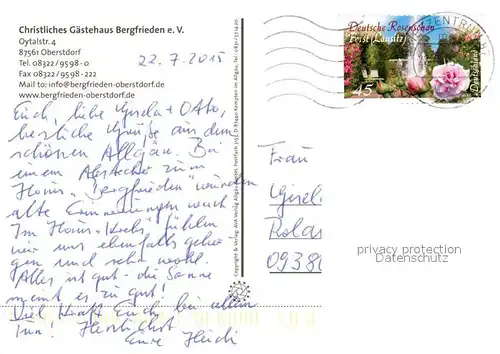 Christliches Gästehaus Bergfrieden e. V.
Oytalstr. 4
87561 Oberstdorf
Tel. 08322/9598-0
Fax 08322/9598-222
Mail to: info@bergfrieden-oberstdorf.de
www.bergfrieden-oberstdorf.de
22.7.2015
Euch, liebe Gisela + Otto,
herzliche Grüße aus dem
schönen Allgäu. Bei
einem Abstecher zum
Haus "Bergfrieden" wurden
alte Erinnerungen wach
Im Haus "Krebs" fühlen
wir uns ebenfalls gebor-
gen und sehr wohl.
Alles ist gut - die Sonne
meint es zu gut!
Viel Kraft Euch bei allem
Tun! Herzlichst
Eure Heidi
Deutsche Rosenschau
Forst (Lausitz)
45
Deutschland
ZENTRUM
Frau
Gisel
Rolan
0938
privacy protection
Datenschutz